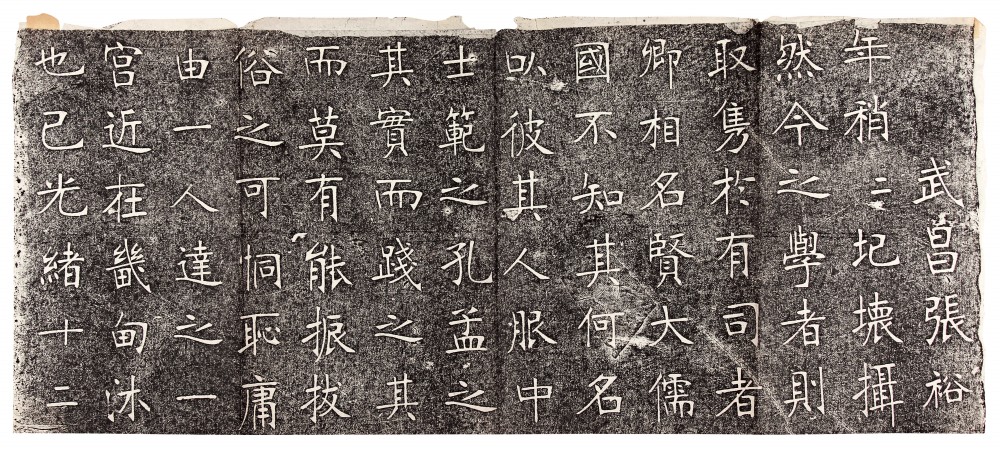 武昌張裕
年稍二圮壞攝
然今之學者則
取雋於有司者
卿相名賢大儒
國不知其何名
以彼其人服中
士範之孔孟之
其實而踐之其
而莫有能振拔
俗之可恫恥庸
由一人達之一
宮近在畿甸沐
也已光緒十二